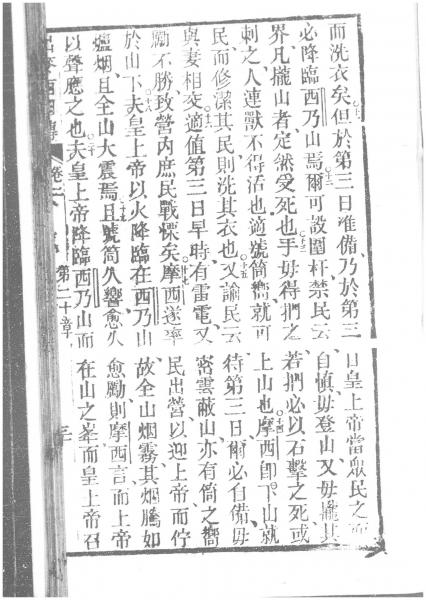 而洗衣矣但於第三日准備乃於第三日皇上帝當眾民之面
必降臨西乃山焉爾可設圍杆禁民云自慎毋登山又毋攏其
界凡攏山者定然受死也手毋得捫之若捫必以石擊之死或
刺之人連獸不得活也適號筒嚮就可上山也摩西即下山就
民而修潔其民則洗其衣也又諭民云待第三日爾必自備毋
與妻相交適值第三日早時有雷電又密雲蔽山亦有筒之嚮
勵不勝致營內庶民戰慄矣摩西遂率民出營以迎上帝而佇
於山下夫皇上帝以火降臨在西乃山故全山烟霧其烟騰如
爐烟且全山大震焉且號筒久響愈久愈勵則摩西言而上帝
以聲應之也夫皇上帝降臨西乃山而在山之峯而皇上帝召
出麥西國傳 卷二 第二十章 三